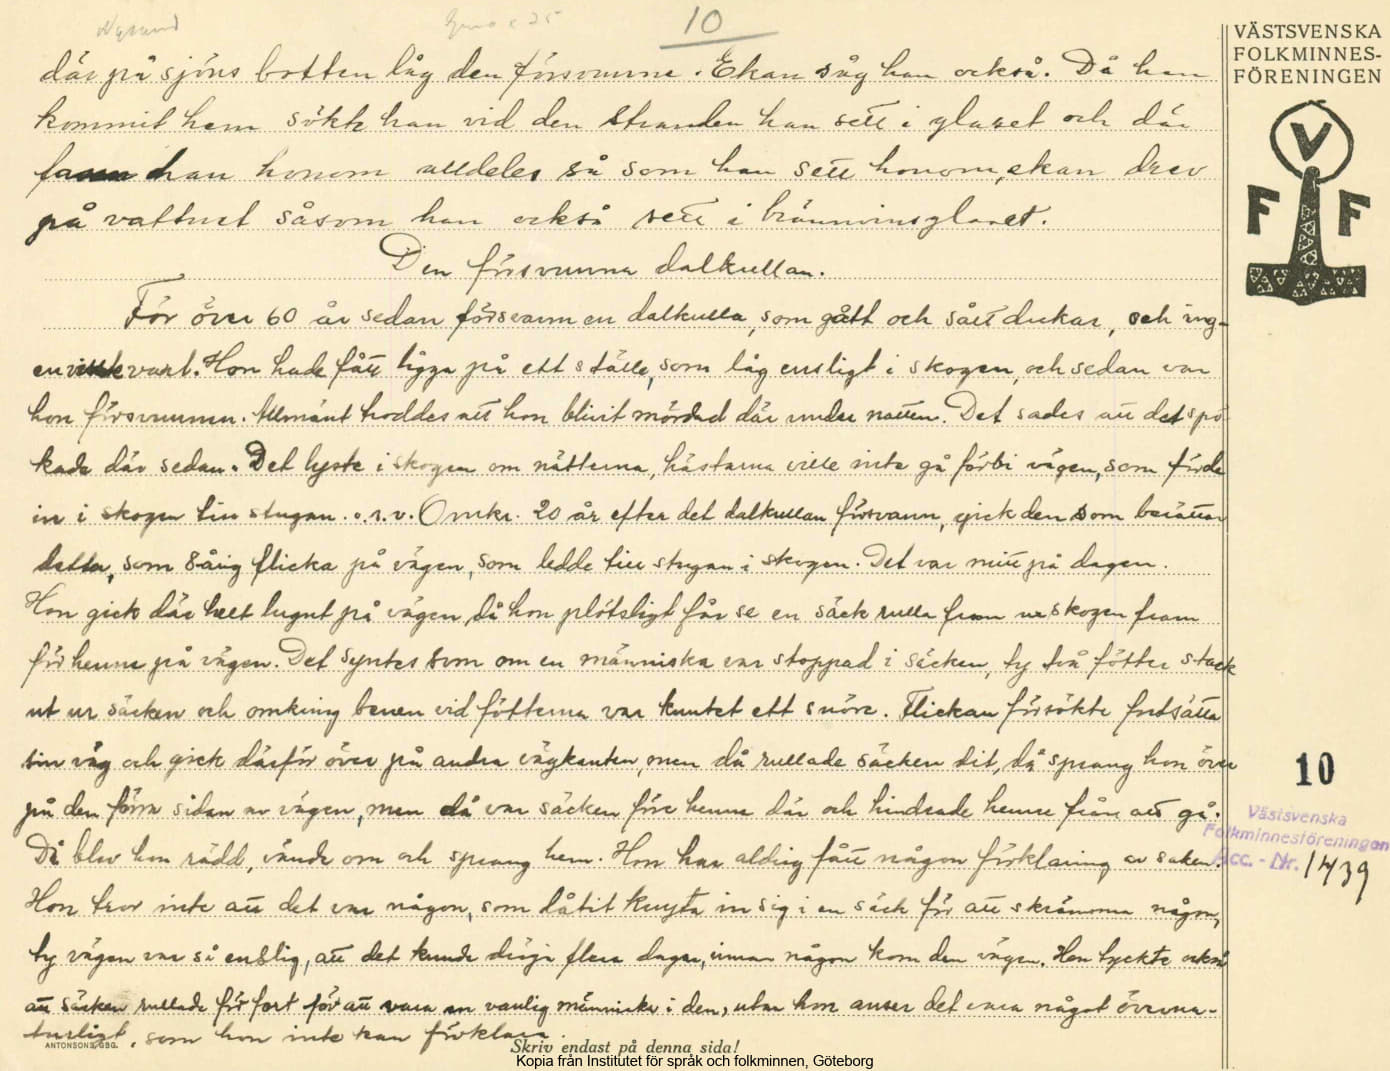 10
VÄSTSVENSKA
FOLKMINNES-
FÖRENINGEN
V
F F
där på sjöns botten låg den försvunne. Ekan såg han också. Då han
kommit hem sökte han vid den stranden han sett i glaset och där
fann han honom alldeles så som han sett honom, ekan drev
på vattnet såsom han också sett i brännvinsglaset.
Den försvunna dalkullan.
För över 60 år sedan försvann en dalkulla, som gått och sålt dukar, och ing-
en visste vart. Hon hade fått ligga på ett ställe, som låg ensligt i skogen, och sedan var
hon försvunnen. Allmänt troddes att hon blivit mördad där under natten. Det sades att det spö-
kade där sedan. Det lyste i skogen om nätterna, hästarna ville inte gå förbi vägen, som förde
in i skogen till stugan. o.s.v. Omkr. 20 år efter det dalkullan försvann, gick den som berättar
detta, som 8-årig flicka på vägen, som ledde till stugan i skogen. Det var mitt på dagen.
Hon gick där helt lugnt på vägen, då hon plötsligt får se en säck rulla fram ur skogen fram
för henne på vägen. Det syntes som om en människa var stoppad i säcken, ty två fötter stack
ut ur säcken och omkring benen vid fötterna var knutet ett snöre. Flickan försökte fortsätta
sin väg och gick därför över på andra vägkanten, men då rullade säcken dit, då sprang hon över
på den förra sidan av vägen, men då var säcken före henne där och hindrade henne från att gå.
Då blev hon rädd, vände om och sprang hem. Hon har aldrig fått någon förklaring av saken.
Hon tror inte att det var någon, som låtit knyta in sig i en säck för att skrämma någon,
ty vägen var så enslig, att det kunde dröja flera dagar, innan någon kom den vägen. Hon tyckte också
att säcken rullade för fort för att vara en vanlig människa i den, utan hon anser det vara något överna-
turligt, som hon inte kan förklara.
10
Västsvenska
Folkminnesföreningen
Acc. - Nr. 1439
ANTONSONS, GBG.
Skriv endast på denna sida!
Kopia från Institutet för språk och folkminnen, Göteborg